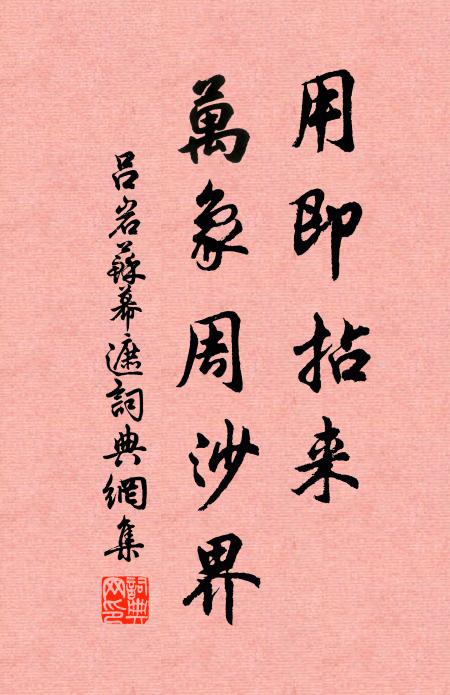 用即拈来
萬象周沙界
吕岩蘇幕遮詞典網集
詞典网印